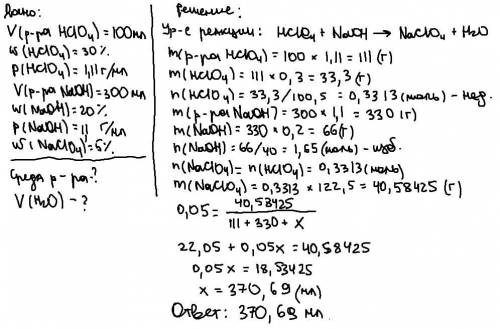 Дано:
V(р-ра HClO4) = 100 мл
w(HClO4) = 30%
ρ(HClO4) = 1,11 г/мл
V(р-ра NaOH) = 300 мл
w(NaOH) = 20%
ρ(NaOH) = 1,1 г/мл
w(NaClO4) = 5%
Среда р-ра?
V(H2O) - ?
Решение:
Ур-е реакции: HClO4 + NaOH → NaClO4 + H2O
m(р-ра HClO4) = 100 × 1,11 = 111 (г)
m(HClO4) = 111 × 0,3 = 33,3 (г)
n(HClO4) = 33,3 / 100,5 = 0,3313 (моль) - нед.
m(р-ра NaOH) = 300 × 1,1 = 330 (г)
m(NaOH) = 330 × 0,2 = 66 (г)
n(NaOH) = 66/40 = 1,65 (моль) - изб.
n(NaClO4) = n(HClO4) = 0,3313 (моль)
m(NaClO4) = 0,3313 × 122,5 = 40,58425 (г)
0,05 = 40,58425 / (111 + 330 + x)
22,05 + 0,05x = 40,58425
0,05x = 18,53425
x = 370,69 (мл)
Ответ: 370,69 мл.